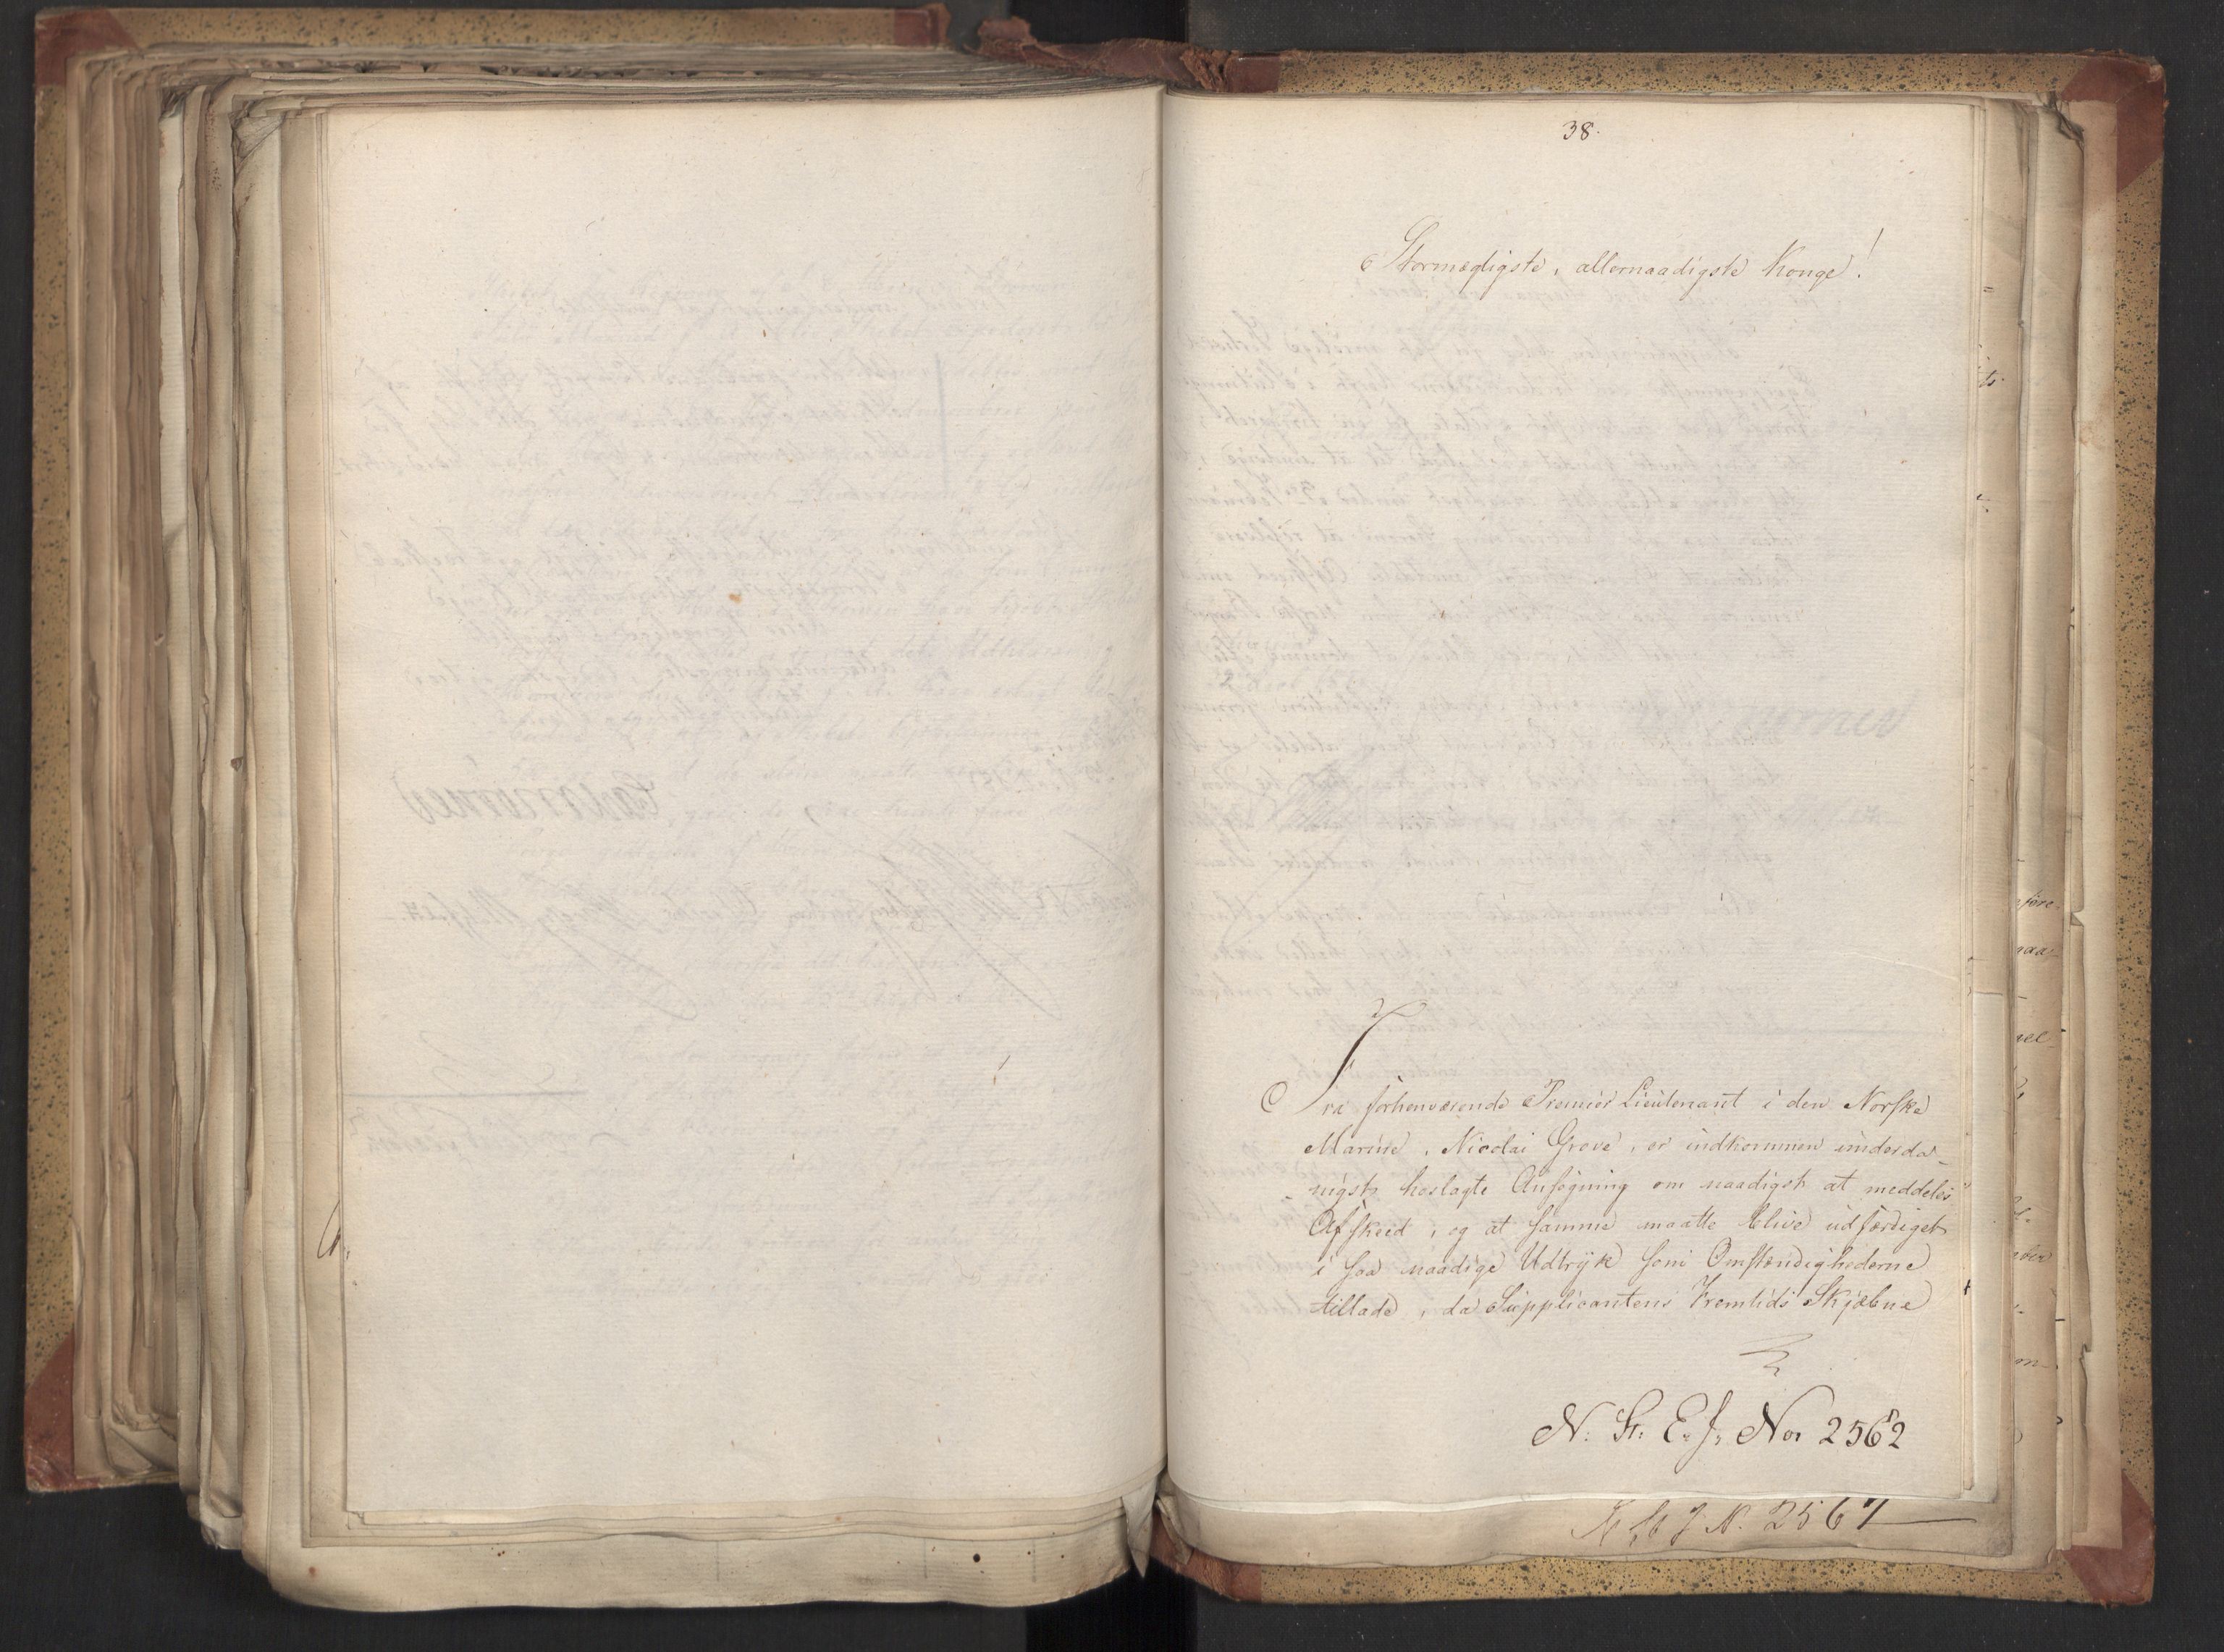 38.
Stormægtigste, allernaadigste Konge!
Fra forhenværende Premier Lieutenant i den Norske
Marine, Nicolai Grove, er indkommen underda-
nigst hoslagte Ansøgning om naadigst at meddeles
Afskeed, og at samme maatte blive udfærdiget
i saa naadige Udtryk som Omstændighederne
tillade, da Supplicantens Fremtids Skjæbne
N. St. E. J. No 2562
2567